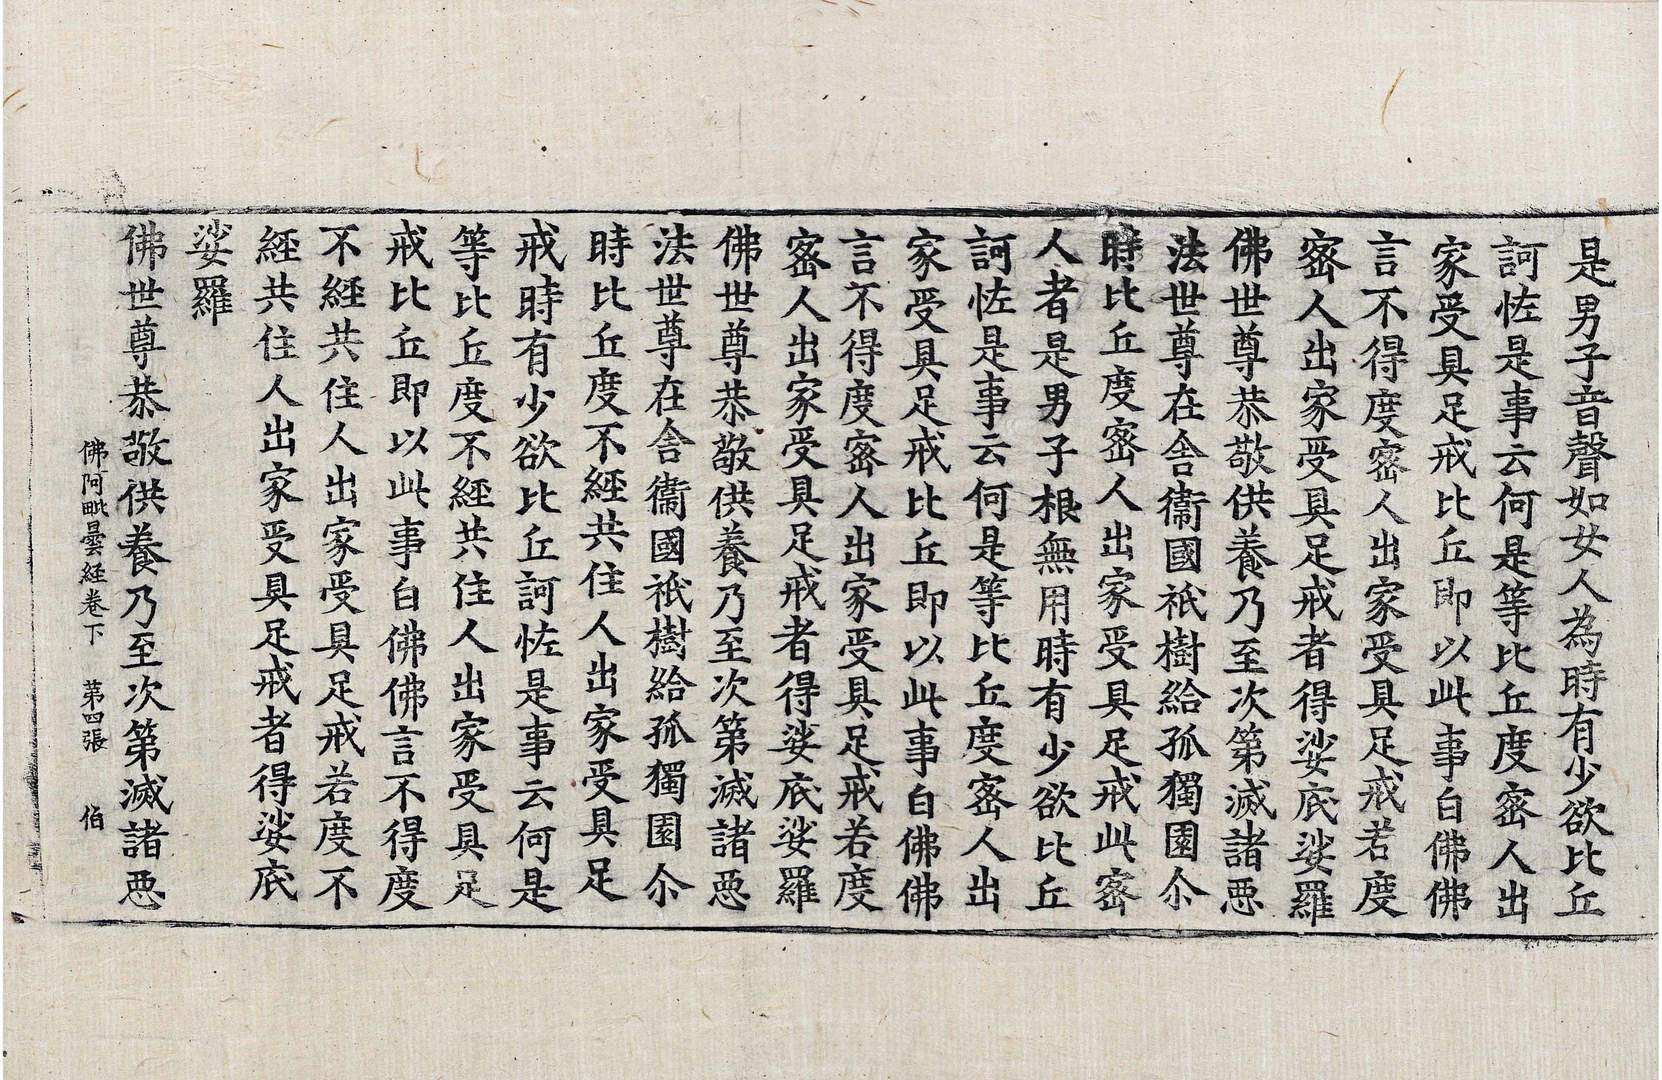 是男子音聲如女人為時有少欲比丘
訶恠是事云何是等比丘度宻人出
家受具足戒比丘即以此事白佛佛
言不得度宻人出家受具足戒若度
宻人出家受具足戒者得娑底娑羅
佛世尊恭敬供養乃至次第滅諸惡
法世尊在舍衞國祇樹給孤獨園尒
時比丘度宻人出家受具足戒此宻
人者是男子根無用時有少欲比丘
訶恠是事云何是等比丘度宻人出
家受具足戒比丘即以此事白佛佛
言不得度宻人出家受具足戒若度
宻人出家受具足戒者得娑底娑羅
佛世尊恭敬供養乃至次第滅諸惡
法世尊在舍衞國祇樹給孤獨園尒
時比丘度不經共住人出家受具足
戒時有少欲比丘訶恠是事云何是
等比丘度不經共住人出家受具足
戒比丘即以此事白佛佛言不得度
不經共住人出家受具足戒若度不
經共住人出家受具足戒者得娑底
娑羅
佛世尊恭敬供養乃至次第滅諸惡
佛阿毗曇經卷下 第四張 伯